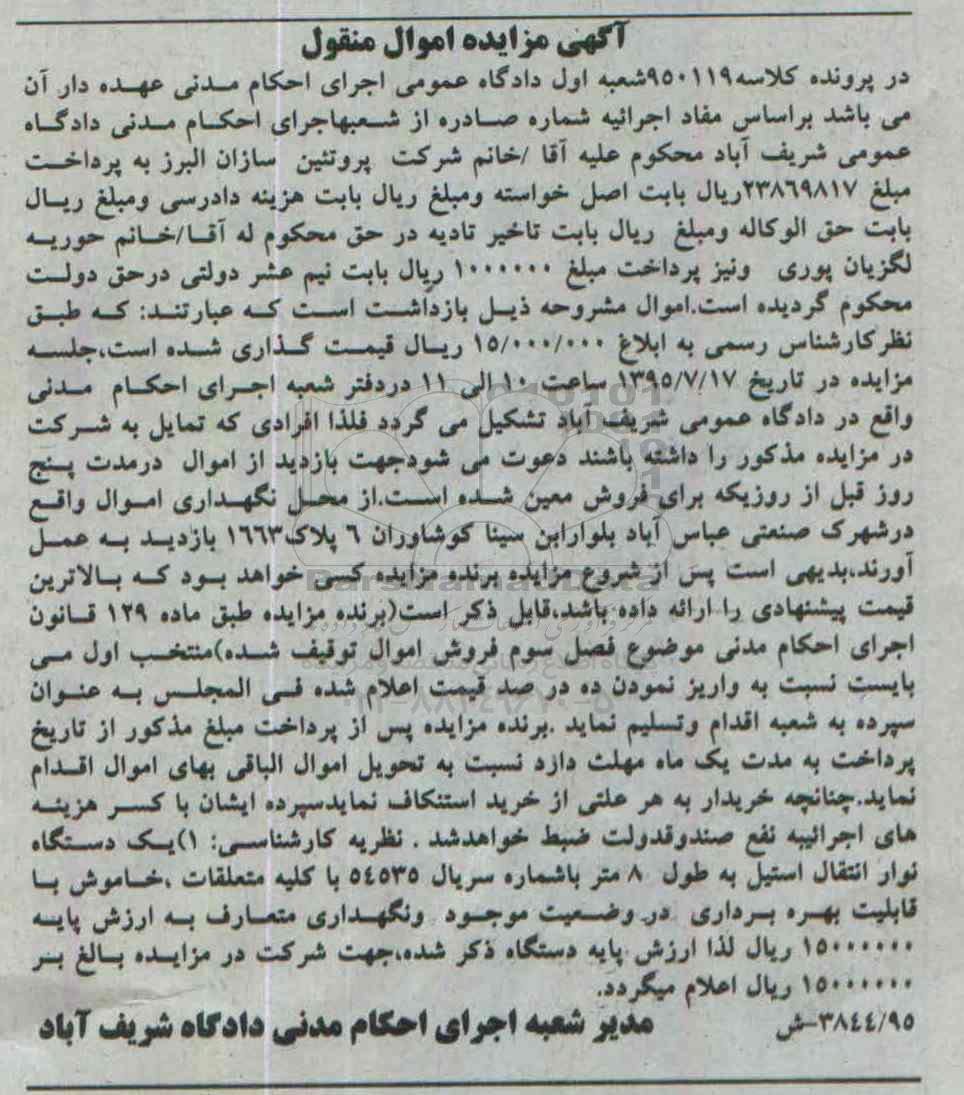 آگهی مزایده اموال منقول
در پرونده کلاسه۹۵۰۱۱۹شعبه اول دادگاه عمومی اجرای احکام مدنی عهده دار آن
می باشد براساس مفاد اجرائیه شماره صادره از شعبهاجرای احکام مدنی دادگاه
عمومی شریف آباد محکوم علیه آقا /خانم شرکت پروتئین سازان البرز به پرداخت
مبلغ ۲۳۸۶۹۸۱۷ریال بابت اصل خواسته ومبلغ ریال بابت هزینه دادرسی ومبلغ ریال
بابت حق الوکاله ومبلغ ریال بابت تاخیر تادیه در حق محکوم له آقا/خانم حوریه
لگزیان پوری ونیز پرداخت مبلغ ۱۰۰۰۰۰۰ ریال بابت نیم عشر دولتی درحق دولت
محکوم گردیده است.اموال مشروحه ذیل بازداشت است که عبارتند: که طبق
نظرکارشناس رسمی به ابلاغ ۱۵/۰۰۰/۰۰۰ ریال قیمت گذاری شده است،جلسه
مزایده در تاریخ ۱۳۹۵/۷/۱۷ ساعت ۱۰ الی ۱۱ دردفتر شعبه اجرای احکام مدنی
واقع در دادگاه عمومی شریف آباد تشکیل می گردد فلذا افرادی که تمایل به شرکت
در مزایده مذکور را داشته باشند دعوت می شودجهت بازدید از اموال درمدت پنج
روز قبل از روزیکه برای فروش معین شده است.از محل نگهداری اموال واقع
درشهرک صنعتی عباس آباد بلوارابن سینا کوشاوران ۶ پلاک۱۶۶۳ بازدید به عمل
آورند،بدیهی است پس از شروع مزایده برنده مزایده کسی خواهد بود که بالاترین
قیمت پیشنهادی را ارائه داده باشد،قابل ذکر است(برنده مزایده طبق ماده ۱۲۹ قانون
اجرای احکام مدنی موضوع فصل سوم فروش اموال توقیف شده)منتخب اول می
بایست نسبت به واریز نمودن ده در صد قیمت اعلام شده فی المجلس به عنوان
سپرده به شعبه اقدام وتسلیم نماید .برنده مزایده پس از پرداخت مبلغ مذکور از تاریخ
پرداخت به مدت یک ماه مهلت دارد نسبت به تحویل اموال الباقی بهای اموال اقدام
نماید.چنانچه خریدار به هر علتی از خرید استنکاف نمایدسپرده ایشان با کسر هزینه
های اجرائیبه نفع صندوقدولت ضبط خواهدشد . نظریه کارشناسی: ۱)یک دستگاه
نوار انتقال استیل به طول ۸ متر باشماره سریال ۵٤۵۳۵ با کلیه متعلقات ،خاموش با
قابلیت بهره برداری در وضعیت موجود ونگهداری متعارف به ارزش پایه
۱۵۰۰۰۰۰۰ ریال لذا ارزش پایه دستگاه ذکر شده،جهت شرکت در مزایده بالغ بر
۱۵۰۰۰۰۰۰ ریال اعلام میگردد.
۳۸٤٤/۹۵-ش مدیر شعبه اجرای احکام مدنی دادگاه شریف آباد